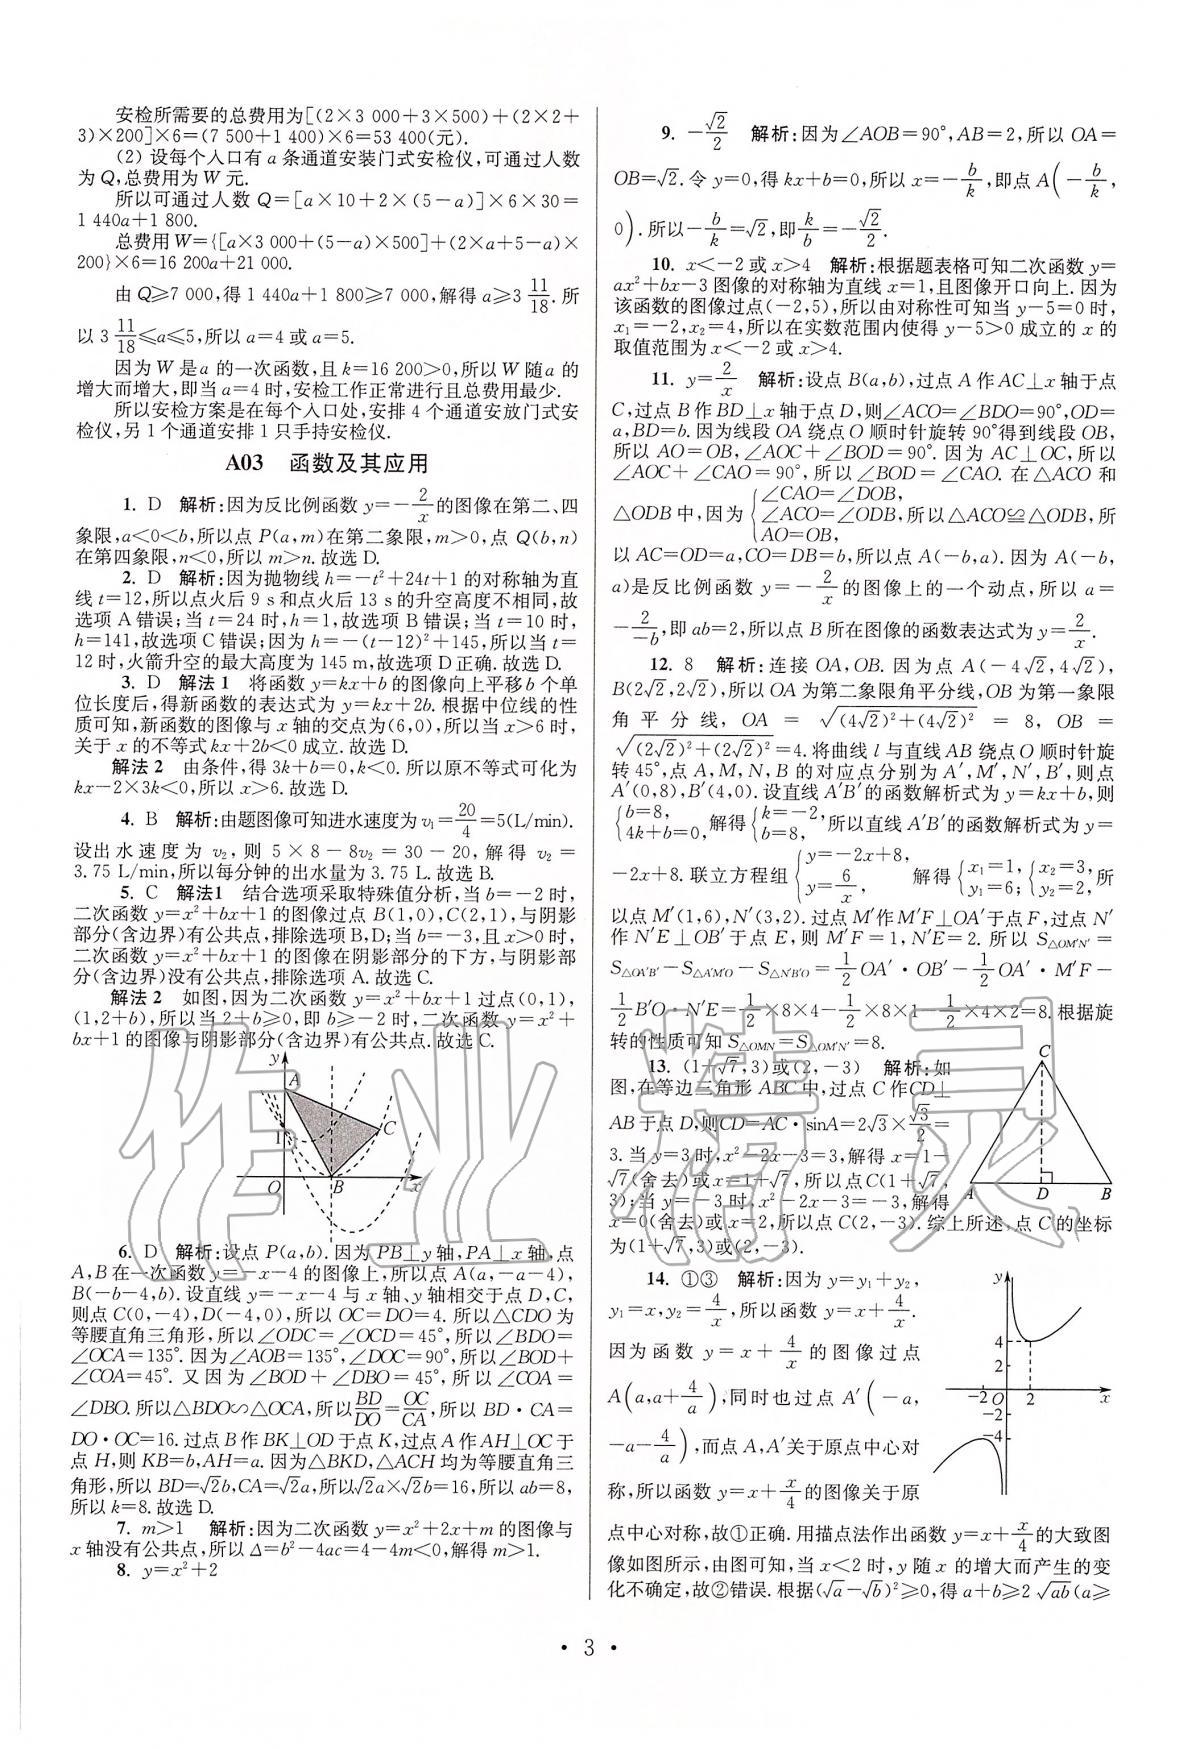 安检所需要的总费用为[(2×3 000+3×500)+(2×2+
3)×200]×6=(7 500+1 400)×6=53 400(元).
(2) 设每个人口有a条通道安装门式安检仪,可通过人数
为Q,总费用为W元.
所以可通过人数 Q=[a×10+2×(5-a)]×6×30=
1 440a+1 800.
总费用W={[a×3 000+(5-a)×500]+(2×a+5-a)×
200}×6=16 200a+21 000.
由Q≥7 000,得1 440a+1 800≥7 000,解得a≥3 11/18.所
以3 11/18≤a≤5,所以a=4或a=5.
因为W是a的一次函数,且k=16 200>0,所以W随a的
增大而增大,即当a=4时,安检工作正常进行且总费用最少.
所以安检方案是在每个人口处,安排4个通道安放门式安
检仪,另1个通道安排1只手持安检仪.
A03 函数及其应用
1. D 解析:因为反比例函数y=-2/x的图像在第二、四
象限,a<0<b,所以点P(a,m)在第二象限,m>0,点Q(b,n)
在第四象限,n<0,所以m>n.故选D.
2. D 解析:因为抛物线h=-t²+24t+1的对称轴为直
线t=12,所以点火后9 s和点火后13 s的升空高度不相同,故
选项A错误;当t=24时,h=1,故选项B错误;当t=10时,
h=141,故选项C错误;因为h=-(t-12)²+145,所以当t=
12时,火箭升空的最大高度为145 m,故选项D正确.故选D.
3. D 解法1 将函数y=kx+b的图像向上平移b个单
位长度后,得新函数的表达式为y=kx+2b.根据中位线的性
质可知,新函数的图像与x轴的交点为(6,0),所以当x>6时,
关于x的不等式kx+2b<0成立.故选D.
解法2 由条件,得3k+b=0,k<0.所以原不等式可化为
kx-2×3k<0,所以x>6.故选D.
4. B 解析:由题图像可知进水速度为v₁=20/4=5(L/min).
设出水速度为v₂,则5×8-8v₂=30-20,解得v₂=
3.75 L/min,所以每分钟的出水量为3.75 L.故选B.
5. C 解法1 结合选项采取特殊值分析,当b=-2时,
二次函数y=x²+bx+1的图像过点B(1,0),C(2,1),与阴影
部分(含边界)有公共点,排除选项B,D;当b=-3,且x>0时,
二次函数y=x²+bx+1的图像在阴影部分的下方,与阴影部
分(含边界)没有公共点,排除选项A.故选C.
解法2 如图,因为二次函数y=x²+bx+1过点(0,1),
(1,2+b),所以当2+b≥0,即b≥-2时,二次函数y=x²+
bx+1的图像与阴影部分(含边界)有公共点.故选C.
y
A
1
C
O
B
x
6. D 解析:设点P(a,b).因为PB⊥y轴,PA⊥x轴,点
A,B在一次函数y=-x-4的图像上,所以点A(a,-a-4),
B(-b-4,b).设直线y=-x-4与x轴、y轴相交于点D,C,
则点C(0,-4),D(-4,0),所以OC=DO=4.所以△CDO为
等腰直角三角形,所以∠ODC=∠OCD=45°,所以∠BDO=
∠OCA=135°.因为∠AOB=135°,∠DOC=90°,所以∠BOD+
∠COA=45°.又因为∠BOD+∠DBO=45°,所以∠COA=
∠DBO.所以△BDO∽△OCA,所以BD/DO=OC/CA,所以BD·CA=
DO·OC=16.过点B作BK⊥OD于点K,过点A作AH⊥OC于
点H,则KB=b,AH=a.因为△BKD,△ACH均为等腰直角三
角形,所以BD=√2b,CA=√2a,所以√2a×√2b=16,所以ab=8,
所以k=8.故选D.
7. m>1 解析:因为二次函数y=x²+2x+m的图像与
x轴没有公共点,所以Δ=b²-4ac=4-4m<0,解得m>1.
8. y=x²+2
9. -√2/2 解析:因为∠AOB=90°,AB=2,所以OA=
OB=√2.令y=0,得kx+b=0,所以x=-b/k,即点A(-b/k,
0).所以-b/k=√2,即k/b=-√2/2.
10. x<-2或x>4 解析:根据题表格可知二次函数y=
ax²+bx-3图像的对称轴为直线x=1,且图像开口向上.因为
该函数的图像过点(-2,5),所以由对称性可知当y-5=0时,
x₁=-2,x₂=4,所以在实数范围内使得y-5>0成立的x的
取值范围为x<-2或x>4.
11. y=2/x 解析:设点B(a,b),过点A作AC⊥x轴于点
C,过点B作BD⊥x轴于点D,则∠ACO=∠BDO=90°,OD=
a,BD=b.因为线段OA绕点O顺时针旋转90°得到线段OB,
所以AO=OB,∠AOC+∠BOD=90°.因为AC⊥OC,所以
∠AOC+∠CAO=90°,所以∠BOD=∠CAO.在△ACO和
△ODB中,因为{∠CAO=∠DOB,
∠ACO=∠ODB,所以△ACO≌△ODB,所
AO=OB,
以AC=OD=a,CO=DB=b,所以点A(-b,a).因为A(-b,
a)是反比例函数y=-2/x的图像上的一个动点,所以a=
-2/-b,即ab=2,所以点B所在图像的函数表达式为y=2/x.
12. 8 解析:连接OA,OB.因为点A(-4√2,4√2),
B(2√2,2√2),所以OA为第二象限角平分线,OB为第一象限
角平分线,OA=√((4√2)²+(4√2)²)=8,OB=
√((2√2)²+(2√2)²)=4.将曲线l与直线AB绕点O顺时针旋
转45°,点A,M,N,B的对应点分别为A′,M′,N′,B′,则点
A′(0,8),B′(4,0).设直线A′B′的函数解析式为y=kx+b,则
{b=8, 4k+b=0,解得{k=-2, b=8,所以直线A′B′的函数解析式为y=
-2x+8.联立方程组{y=-2x+8, y=6/x,解得{x₁=1, y₁=6;{x₂=3, y₂=2,所
以点M′(1,6),N′(3,2).过点M′作M′F⊥OA′于点F,过点N′
作N′E⊥OB′于点E,则M′F=1,N′E=2.所以S△OM′N′=
S△OA′B′-S△A′M′O-S△N′B′O=1/2OA′·OB′-1/2OA′·M′F-
1/2B′O·N′E=1/2×8×4-1/2×8×1-1/2×4×2=8.根据旋
转的性质可知S△OMN=S△OM′N′=8.
13. (1+√7,3)或(2,-3) 解析:如
图,在等边三角形ABC中,过点C作CD⊥
AB于点D,则CD=AC·sinA=2√3×√3/2=
3.当y=3时,x²-2x-3=3,解得x=1-
√7(舍去)或x=1+√7,所以点C(1+√7,
3);当y=-3时,x²-2x-3=-3,解得
x=0(舍去)或x=2,所以点C(2,-3).综上所述,点C的坐标
为(1+√7,3)或(2,-3).
C
A
D
B
14. ①③ 解析:因为y=y₁+y₂,
y₁=x,y₂=4/x,所以函数y=x+4/x.
因为函数y=x+4/x的图像过点
A(a,a+4/a),同时也过点A′(-a,
-a-4/a),而点A,A′关于原点中心对
称,所以函数y=x+x/4的图像关于原
点中心对称,故①正确.用描点法作出函数y=x+x/4的大致图
像如图所示,由图可知,当x<2时,y随x的增大而产生的变
化不确定,故②错误.根据(√a-√b)²≥0,得a+b≥2√ab(a≥
y
4
2
-2 O 2 x
-2
-4
·3·
作业精灵